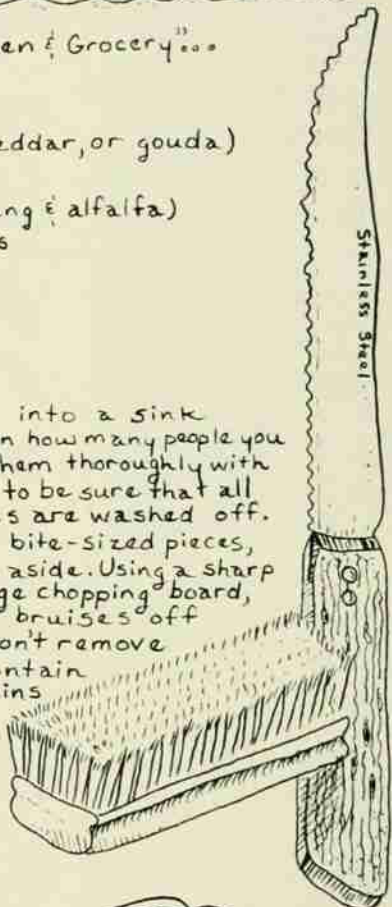 en & Grocery"...
eddar, or gouda)
ng & alfalfa)
s
into a sink
n how many people you
hem thoroughly with
to be sure that all
s are washed off.
bite-sized pieces,
aside. Using a sharp
ge chopping board,
bruises off
on't remove
ntain
ins
Stainless Steel